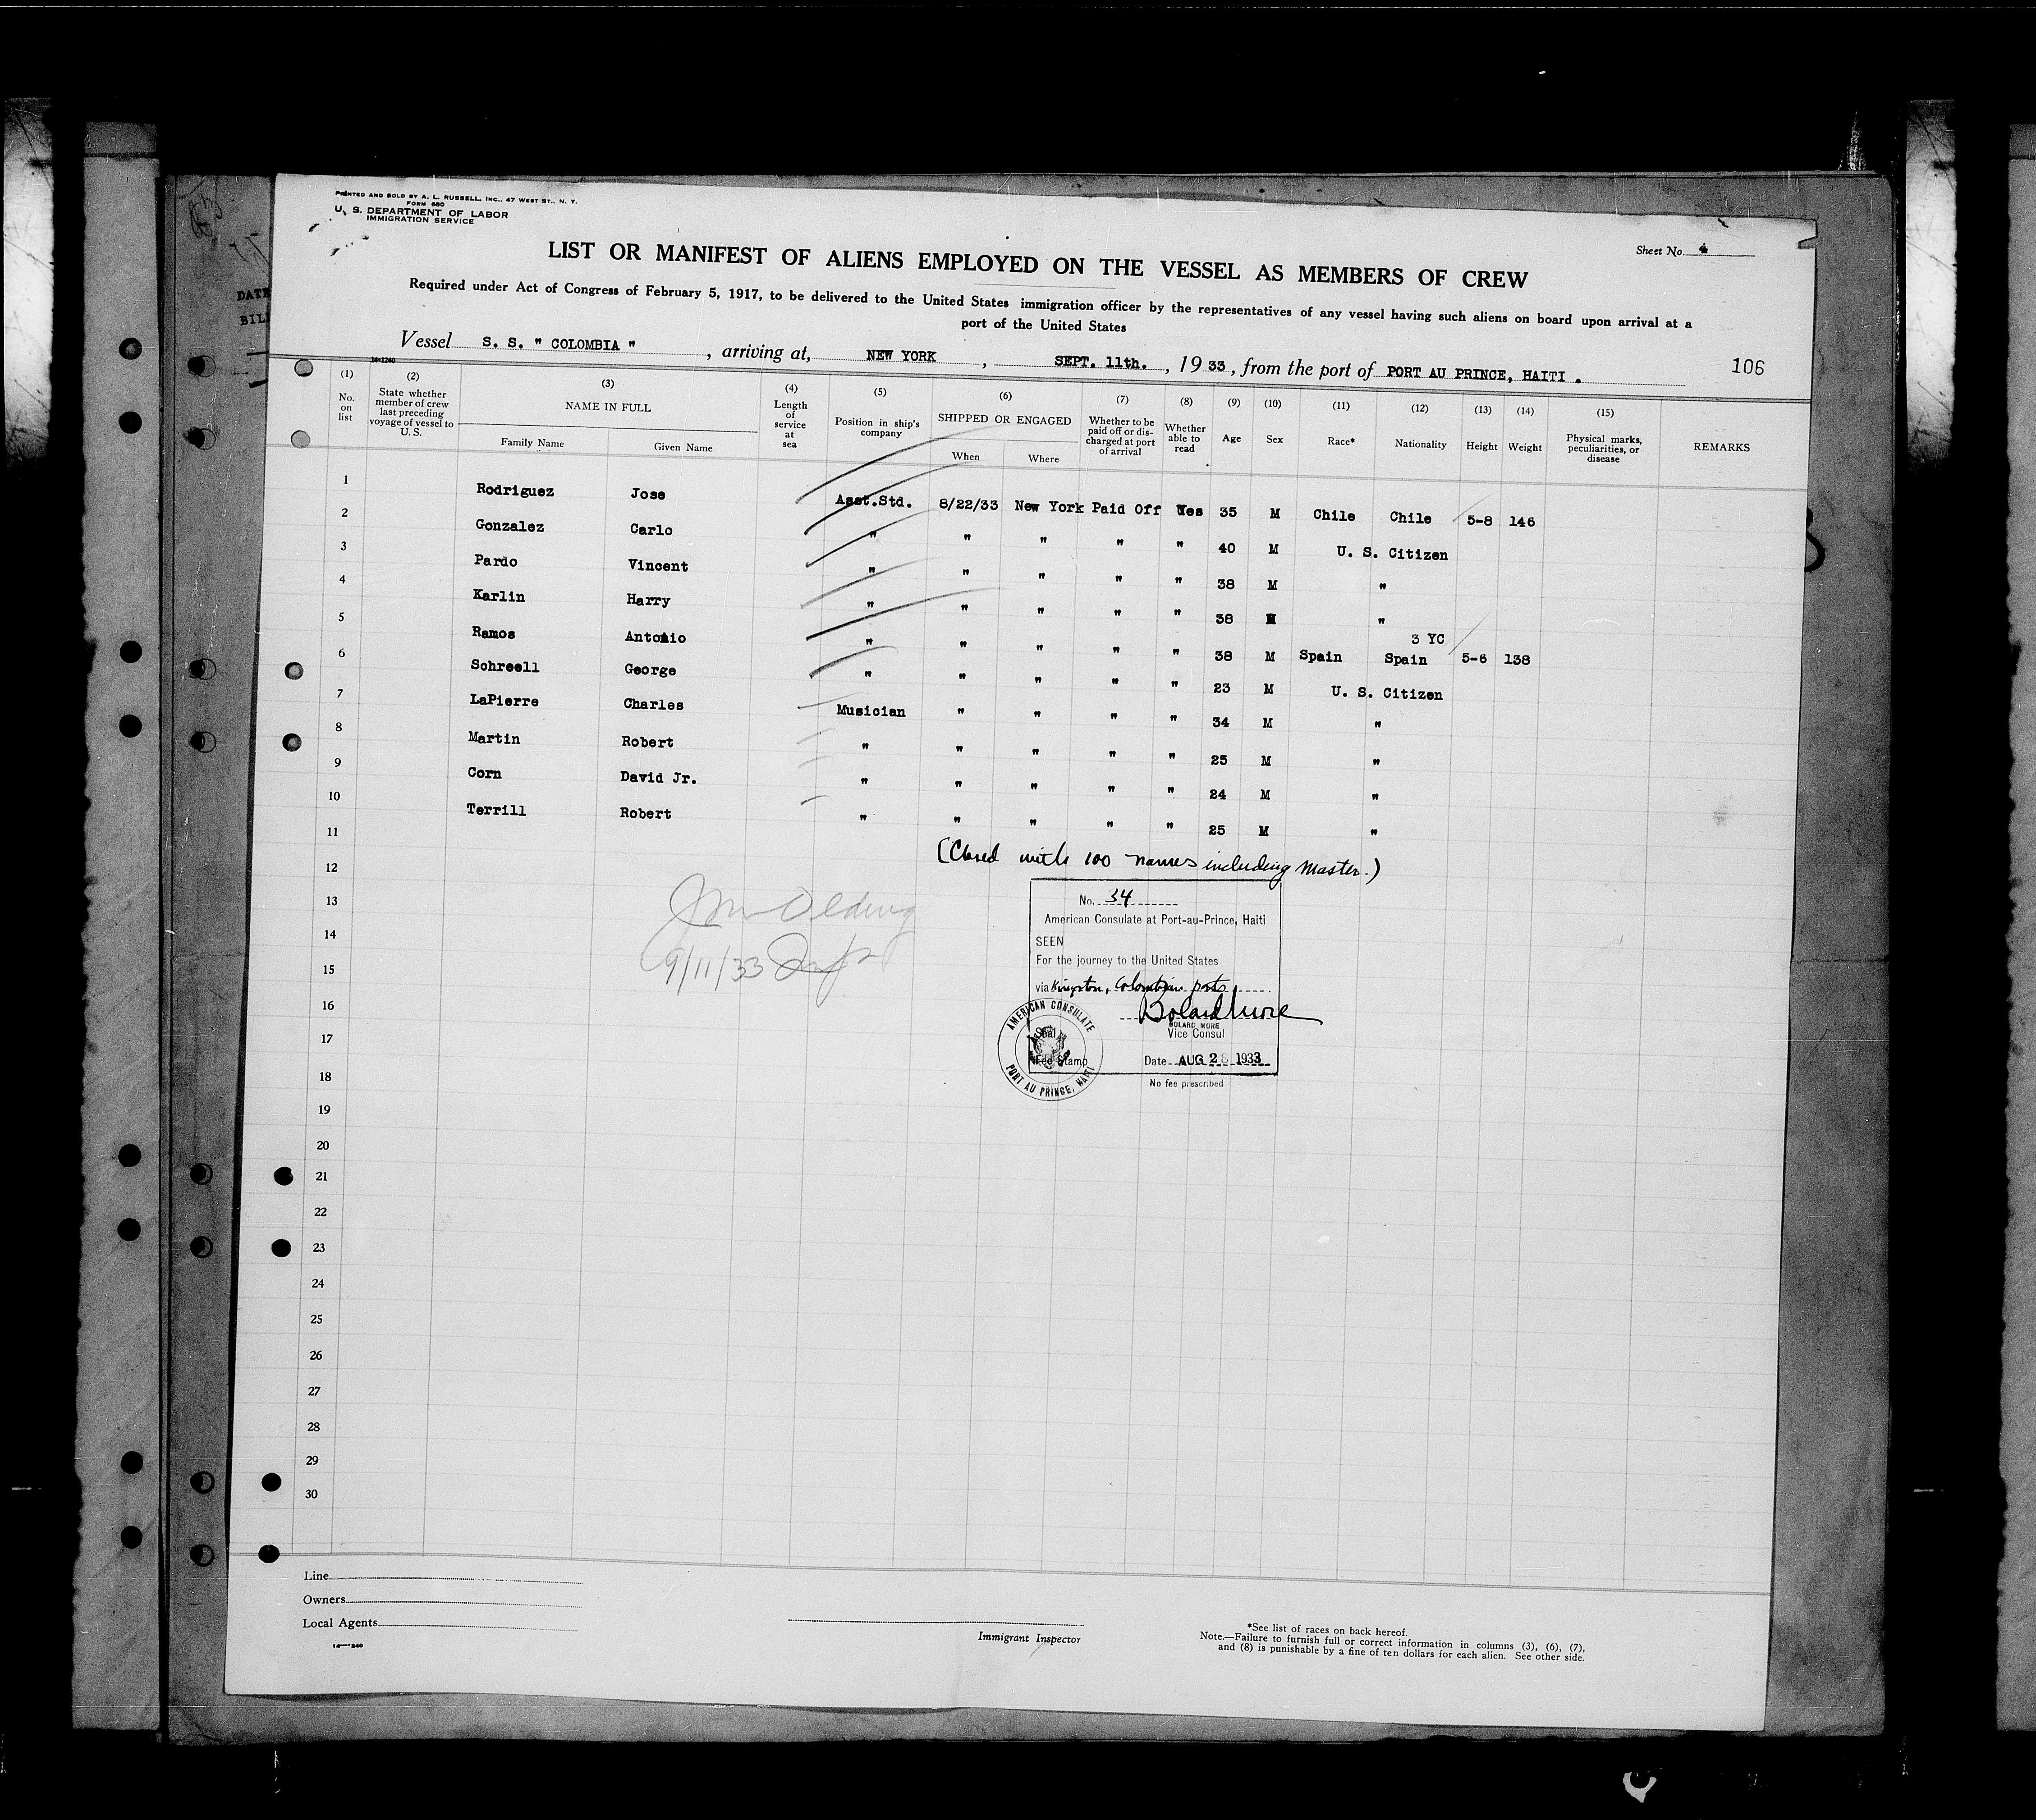 PRINTED AND SOLD BY A. L. RUSSELL, INC., 47 WEST ST., N. Y.
FORM 680
U. S. DEPARTMENT OF LABOR
IMMIGRATION SERVICE
Sheet No. 4
LIST OR MANIFEST OF ALIENS EMPLOYED ON THE VESSEL AS MEMBERS OF CREW
Required under Act of Congress of February 5, 1917, to be delivered to the United States immigration officer by the representatives of any vessel having such aliens on board upon arrival at a
port of the United States
Vessel S. S. " COLOMBIA " , arriving at, NEW YORK , SEPT. 11th. , 19 33 , from the port of PORT AU PRINCE, HAITI .
106
DATE
BIL
(1) No. on list
(2) State whether member of crew last preceding voyage of vessel to U. S.
(3) NAME IN FULL Family Name Given Name
(4) Length of service at sea
(5) Position in ship's company
(6) SHIPPED OR ENGAGED When Where
(7) Whether to be paid off or discharged at port of arrival
(8) Whether able to read
(9) Age
(10) Sex
(11) Race*
(12) Nationality
(13) Height
(14) Weight
(15) Physical marks, peculiarities, or disease
REMARKS
1 Rodriguez Jose Asst.Std. 8/22/33 New York Paid Off Yes 35 M Chile Chile 5-8 146
2 Gonzalez Carlo " " " " " 40 M U. S. Citizen
3 Pardo Vincent " " " " " 38 M "
4 Karlin Harry " " " " " 38 M "
3 YC
5 Ramos Antonio " " " " " 38 M Spain Spain 5-6 138
6 Schreell George " " " " " 23 M U. S. Citizen
7 LaPierre Charles Musician " " " " 34 M "
8 Martin Robert " " " " " 25 M "
9 Corn David Jr. " " " " " 24 M "
10 Terrill Robert " " " " " 25 M "
11
(Closed with 100 names including Master.)
12
13
14
15
16
17
18
19
20
21
22
23
24
25
26
27
28
29
30
9/11/33
No. 34
American Consulate at Port-au-Prince, Haiti
SEEN
For the journey to the United States
via Kingston, Colombian ports
Bolard More
BOLARD MORE
Vice Consul
Seal
Fee Stamp
Date AUG 28 1933
No fee prescribed
AMERICAN CONSULATE
PORT AU PRINCE, HAITI
Line
Owners
Local Agents
Immigrant Inspector
*See list of races on back hereof.
Note.—Failure to furnish full or correct information in columns (3), (6), (7),
and (8) is punishable by a fine of ten dollars for each alien. See other side.